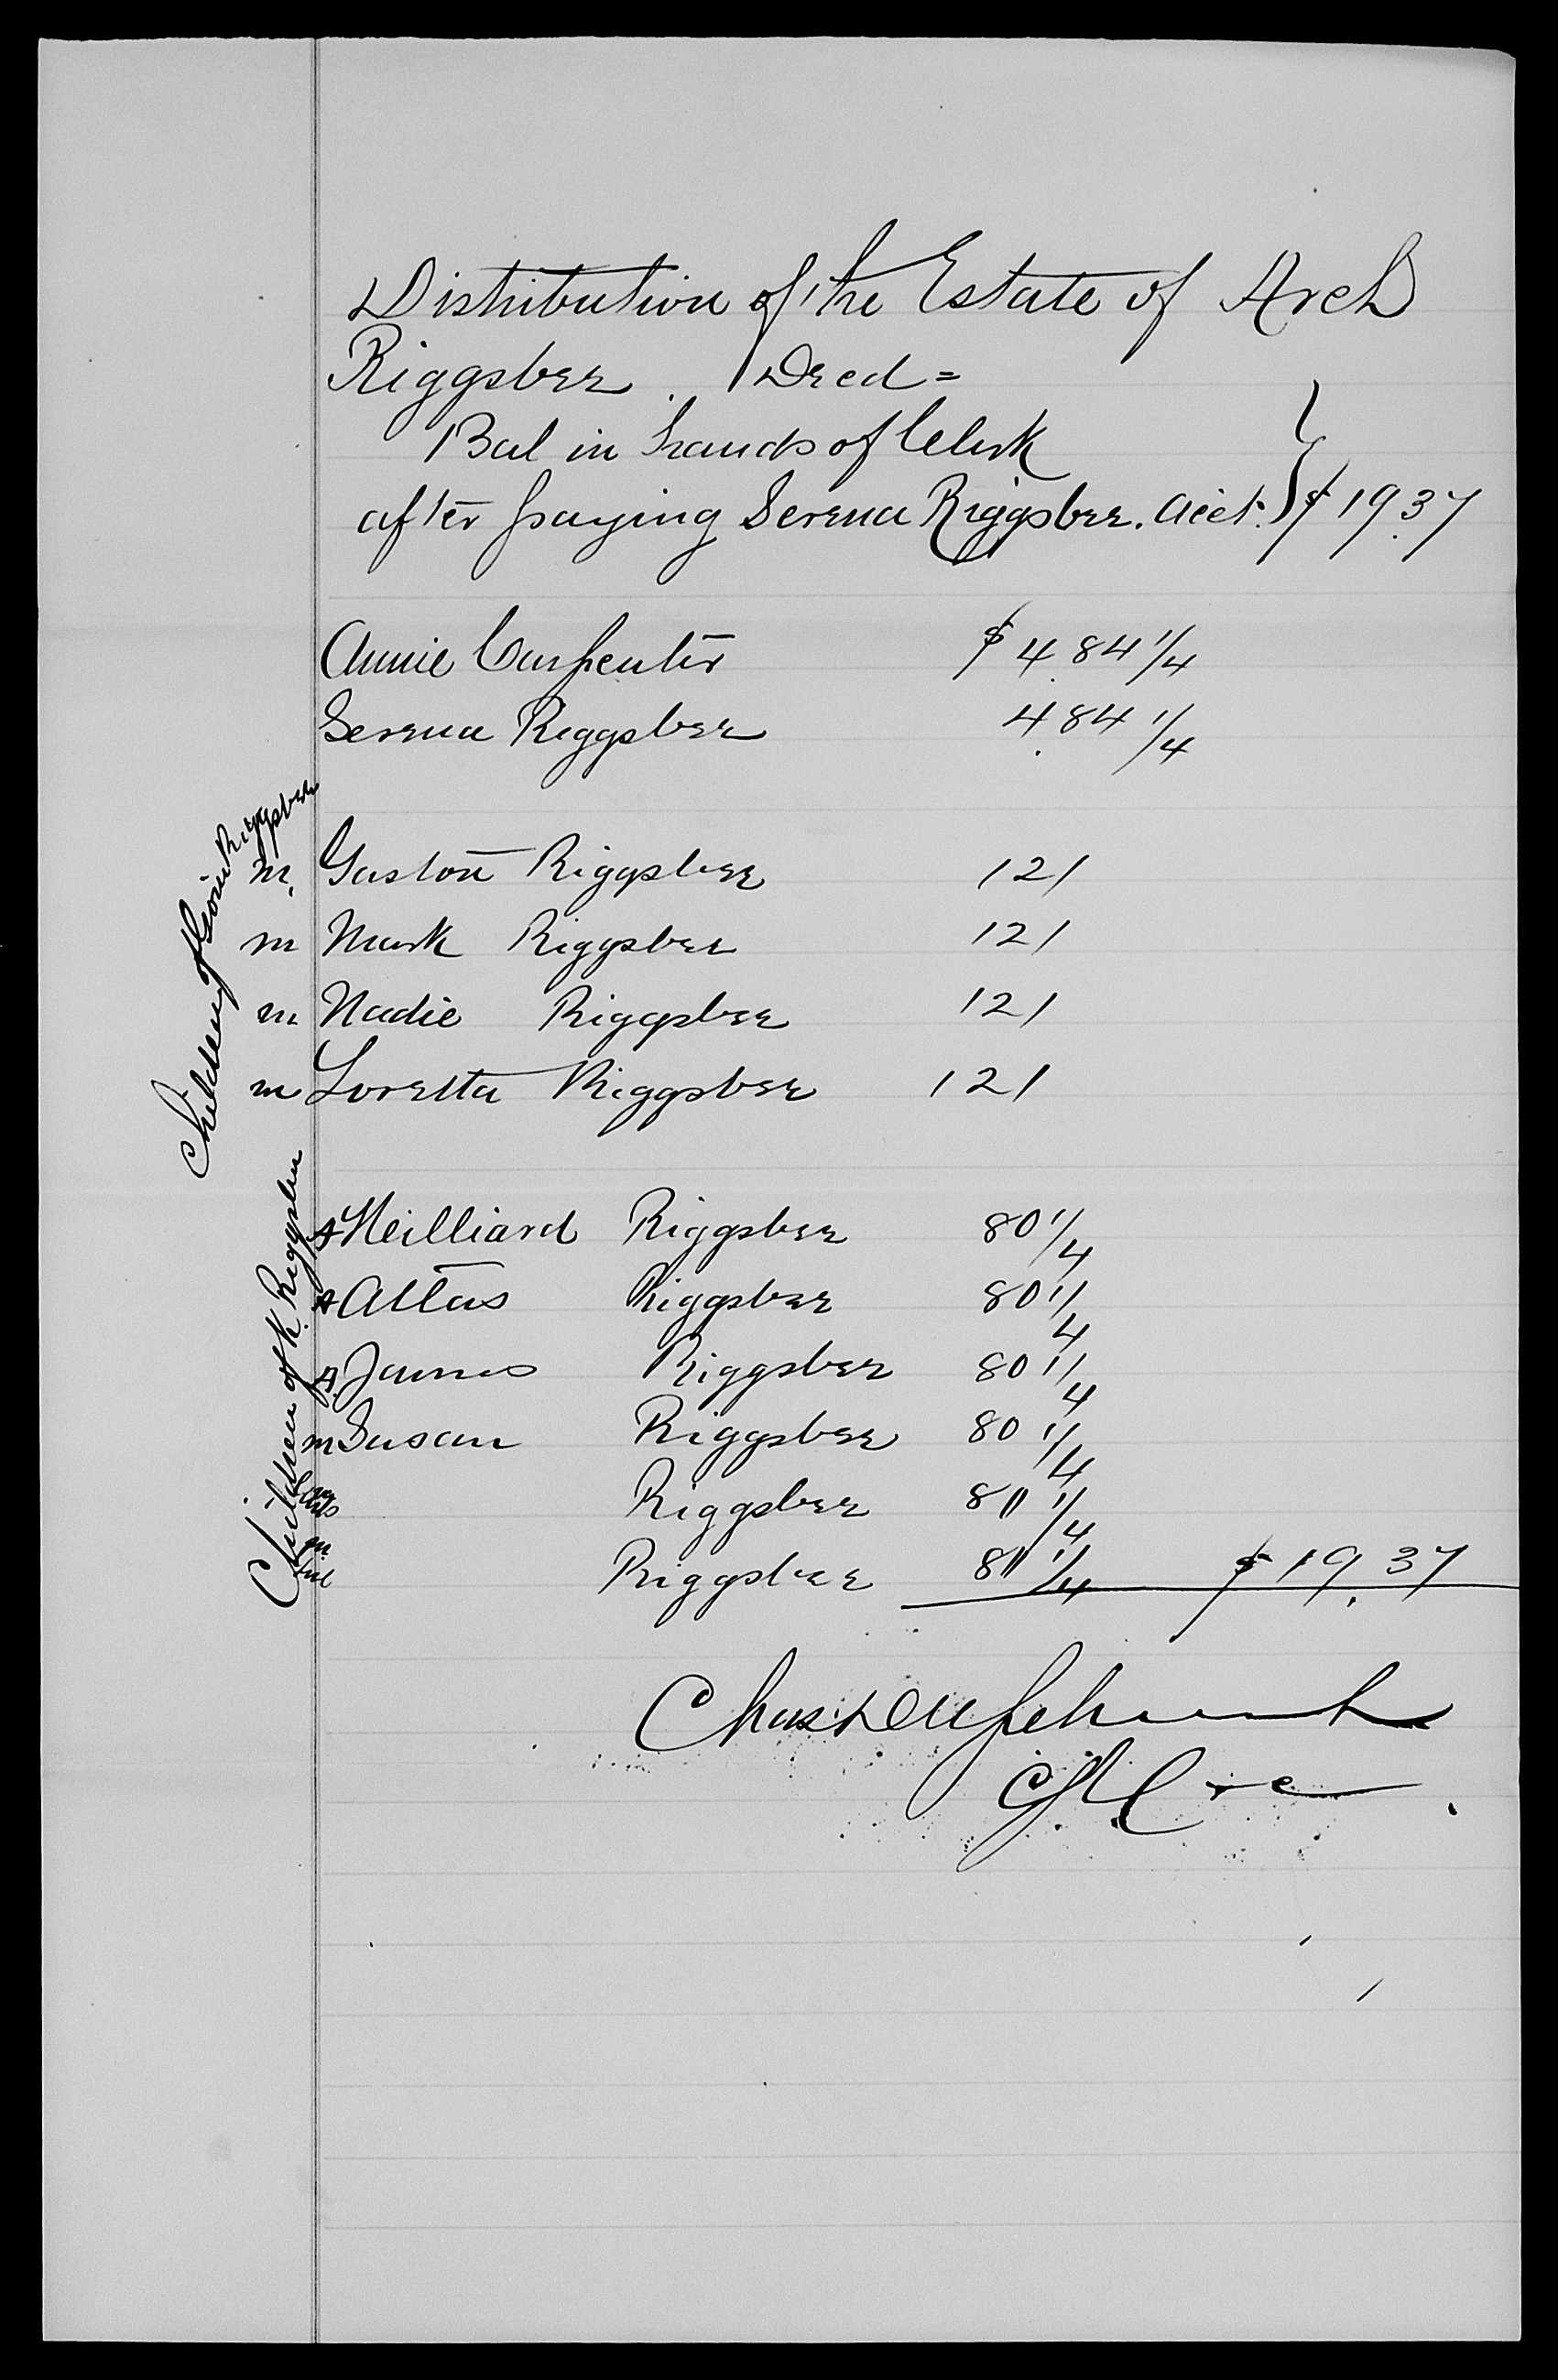 Distribution of the Estate of Arch
Riggsbee Decd =
Bal in hands of Clerk
after paying Serena Riggsbee. acct. } $19.37
Annie Carpenter $4.84 1/4
Serena Riggsbee 4.84 1/4
Children of Riggsbee
m. Gaston Riggsbee 121
m Mark Riggsbee 121
m Nadie Riggsbee 121
m Loretta Riggsbee 121
Children of K. Riggsbee
A Heilliard Riggsbee 80 1/4
A Altas Riggsbee 80 1/4
A. James Riggsbee 80 1/4
m Susan Riggsbee 80 1/4
Riggsbee 80 1/4
m
Riggsbee 80 1/4 $19.37
Chas
CSC